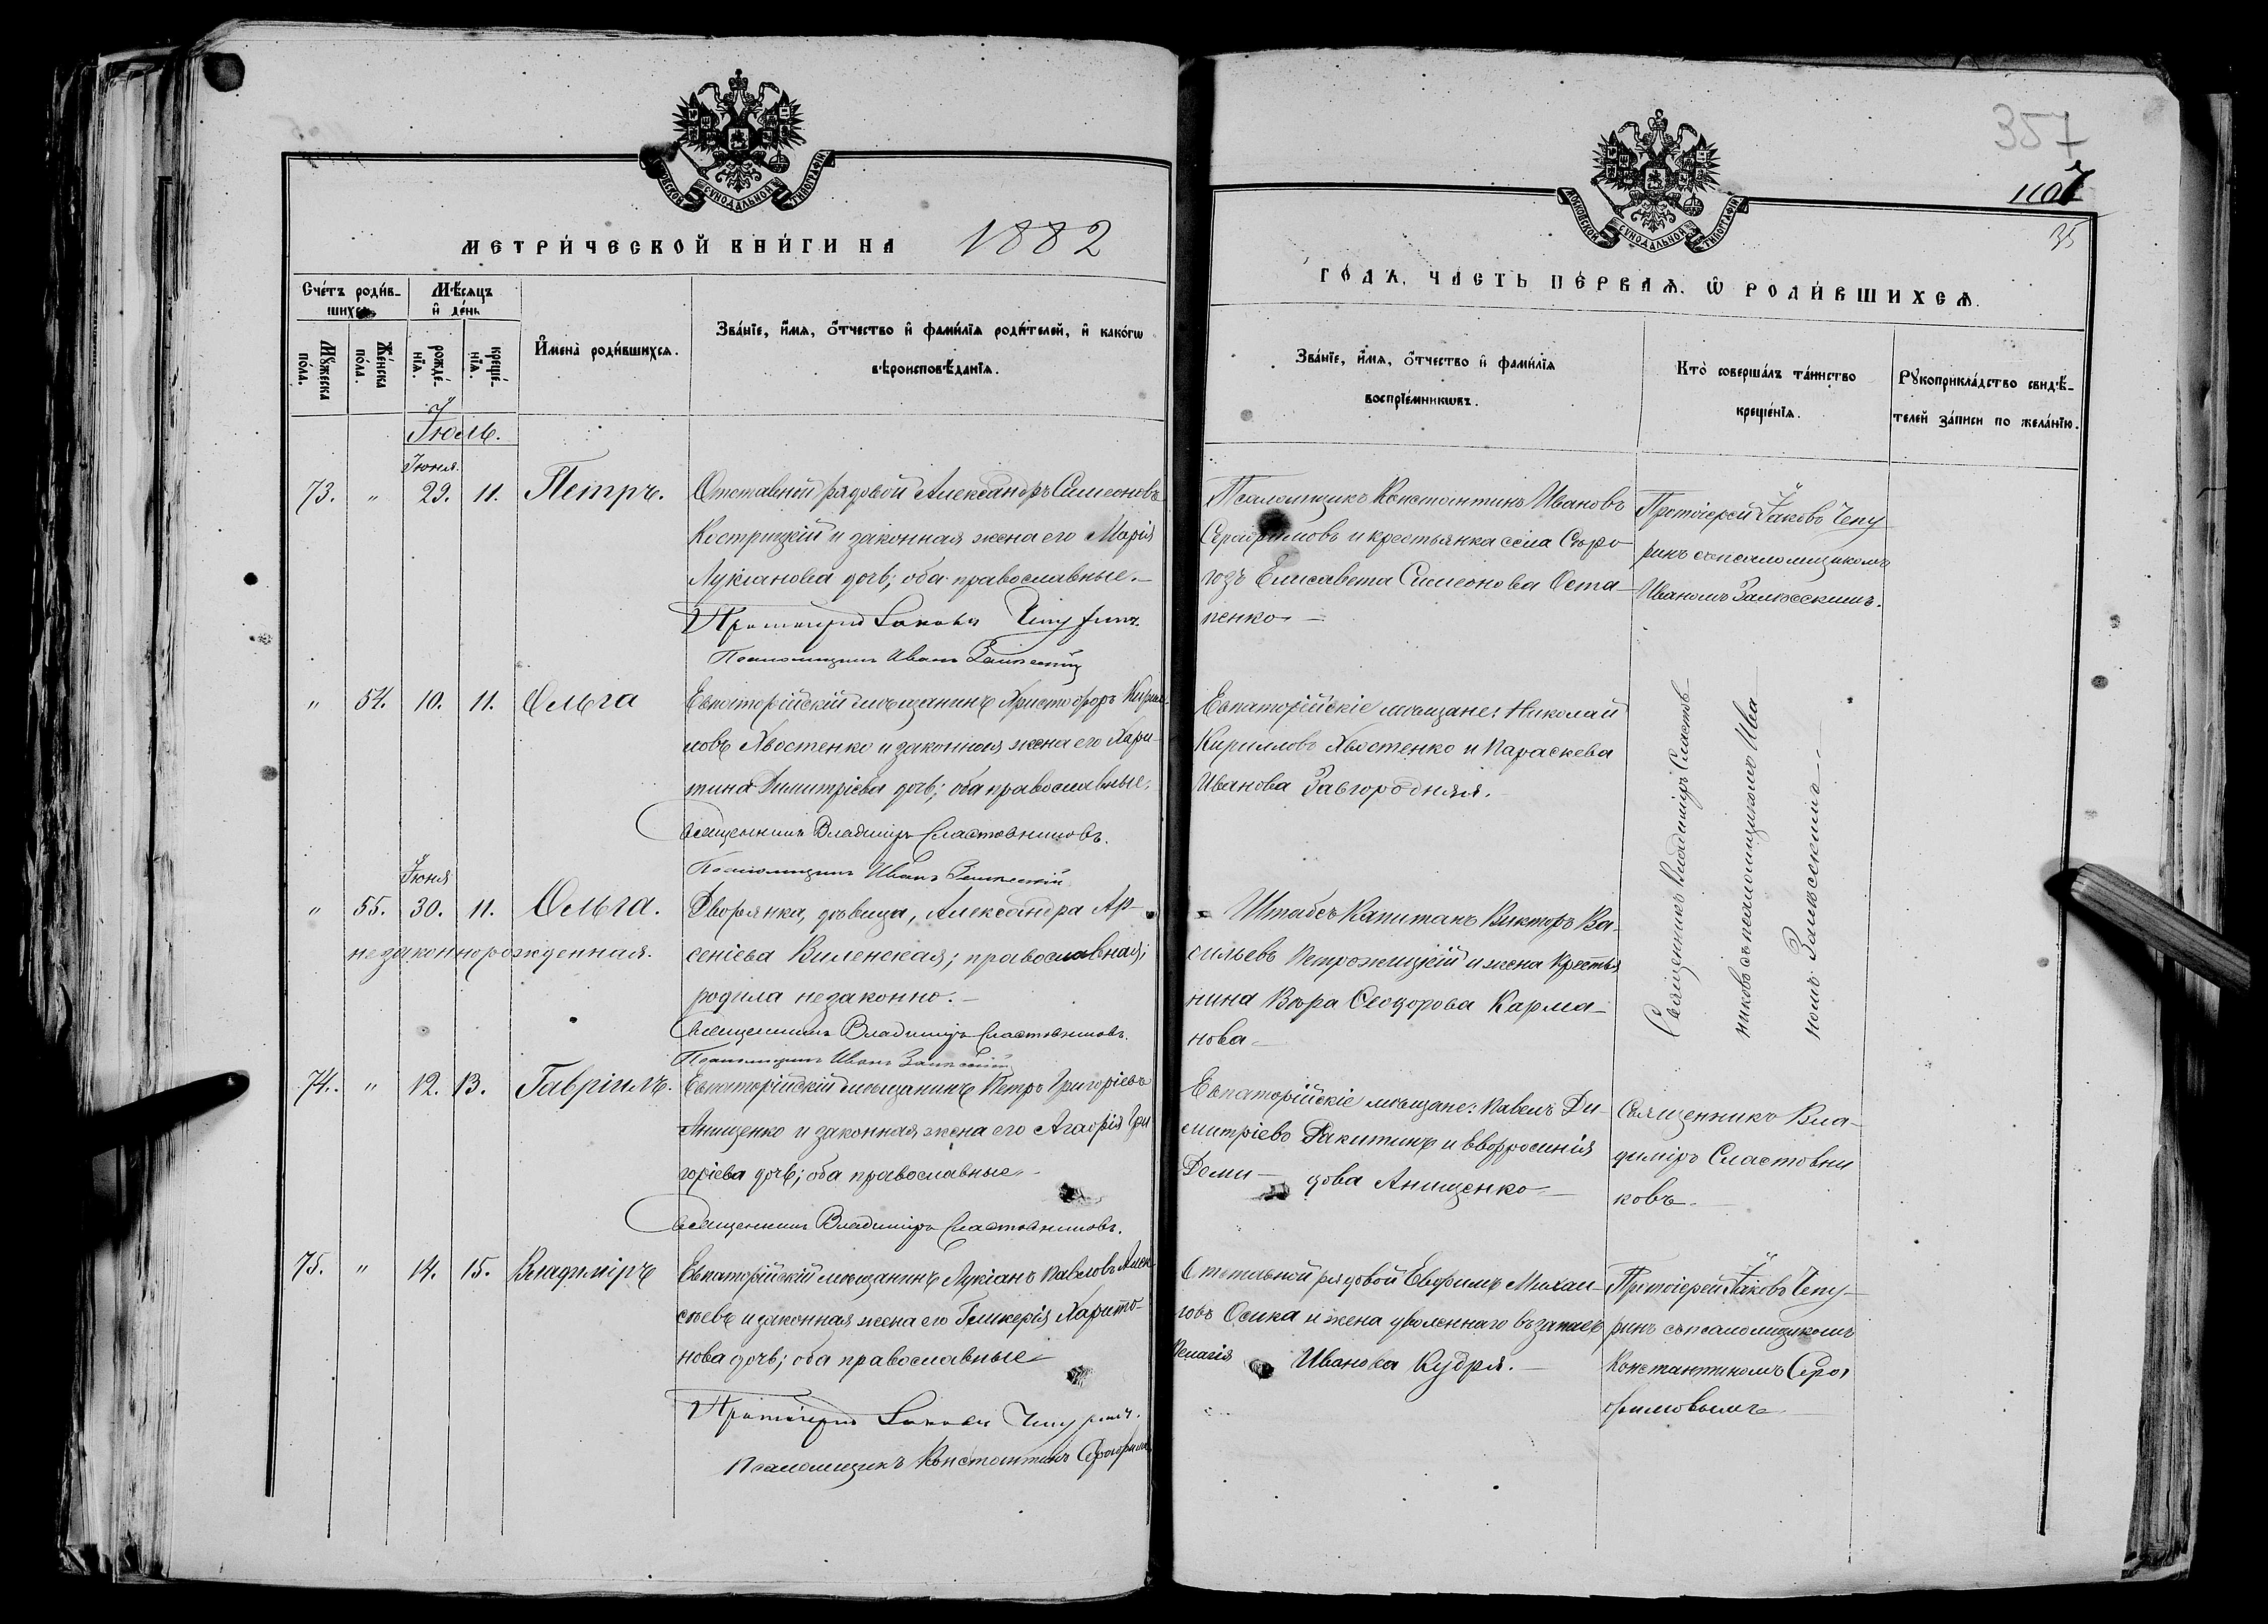 357
1107
35
МОСКОВСКОЙ СѴНОДАЛЬНОЙ ТИПОГРАФІИ
МЕТРИ́ЧЕСКОЙ КНИ́ГИ НА 1882
Сче́тъ роди́в-
шихся.
Мѣ́сяцъ
и҆ де́нь
Мꙋ́жеска
по́ла.
Же́нска
по́ла.
рожде́-
нїѧ.
креще́-
нїѧ.
И҆мена̀ роди́вшихсѧ.
Зва́нїе, и҆́мѧ, ѻ҆́тчество и҆ фами́лїѧ роди́телей, и҆ како́гѡ
вѣроисповѣ́данїѧ.
Іюль.
Іюня
73. " 29. 11. Петръ.
Отставной рядовой Александръ Симеоновъ
Кострицкій и законная жена его Марія
Лукіанова дочь; оба православные.—
Протоіерей Іаковъ Чепуринъ.
Псаломщикъ Иванъ Залѣсскій
" 54. 10. 11. Ольга
Евпаторійскій мѣщанинъ Христофоръ Кирил-
ловъ Хвостенко и законная жена его Хари-
тина Димитріева дочь; оба православные.
Священникъ Владиміръ Сластовниковъ.
Псаломщикъ Иванъ Залѣсскій
Іюня
" 55. 30. 11. Ольга.
незаконнорожденная.
Дворянка, дѣвица, Александра Ар-
сеніева Виленская; православная;
родила незаконно.—
Священникъ Владиміръ Сластовниковъ.
Псаломщикъ Иванъ Залѣсскій
74. " 12. 13. Гавріилъ.
Евпаторійскій мѣщанинъ Петръ Григорьевъ
Анищенко и законная жена его Агафія Гри
горіева дочь; оба православные
Священникъ Владиміръ Сластовниковъ.
75. " 14. 15. Владиміръ
Евпаторійскій мѣщанинъ Лукіанъ Павловъ Алек-
сѣевъ и законная жена его Гликерія Харито-
нова дочь; оба православные
Протоіерей Іаковъ Чепуринъ.
Псаломщикъ Константинъ
МОСКОВСКОЙ СѴНОДАЛЬНОЙ ТИПОГРАФІИ
ГО́ДЪ, ЧА́СТЬ ПЕ́РВАѦ, Ѡ҆ РОДИ́ВШИХСѦ.
Зва́нїе, и҆́мѧ, ѻ҆́тчество и҆ фами́лїѧ
воспрїе́мникѡвъ.
Кто̀ соверша́лъ та́инство
креще́нїѧ.
Рꙋкоприкла́дство свидѣ́-
телей за́писи по жела́нїю.
Псаломщикъ Константинъ Ивановъ
Серафимовъ и крестьянка села Сѣро
гозъ Елисавета Симеонова Оста-
пенко—
Протоіерей Іаковъ Чепу
ринъ съ псаломщикомъ
Иваномъ Залѣсскимъ.
Евпаторійскіе мѣщане: Николай
Кирилловъ Хвостенко и Параскева
Иванова Завгородняя.
Штабсъ Капитанъ Викторъ Ва-
сильевъ Петрожицкій и жена крестья
нина Вѣра Ѳеодорова Карма-
нова—
Священникъ Владиміръ Сластов-
никовъ съ псаломщикомъ Ива
номъ Залѣсскимъ.
Евпаторійскіе мѣщане: Павелъ Ди-
митріевъ Ракитинъ и Евфросинія
Деми- дова Анищенко—
Священникъ Вла-
диміръ Сластовни
ковъ.
Отставной рядовой Евфимъ Михаи-
ловъ Осика и жена уволеннаго въ запасъ
Пелагія Иванова Кудря.—
Протоіерей Іаковъ Чепу-
ринъ съ псаломщикомъ
Константиномъ Сера-
фимовымъ